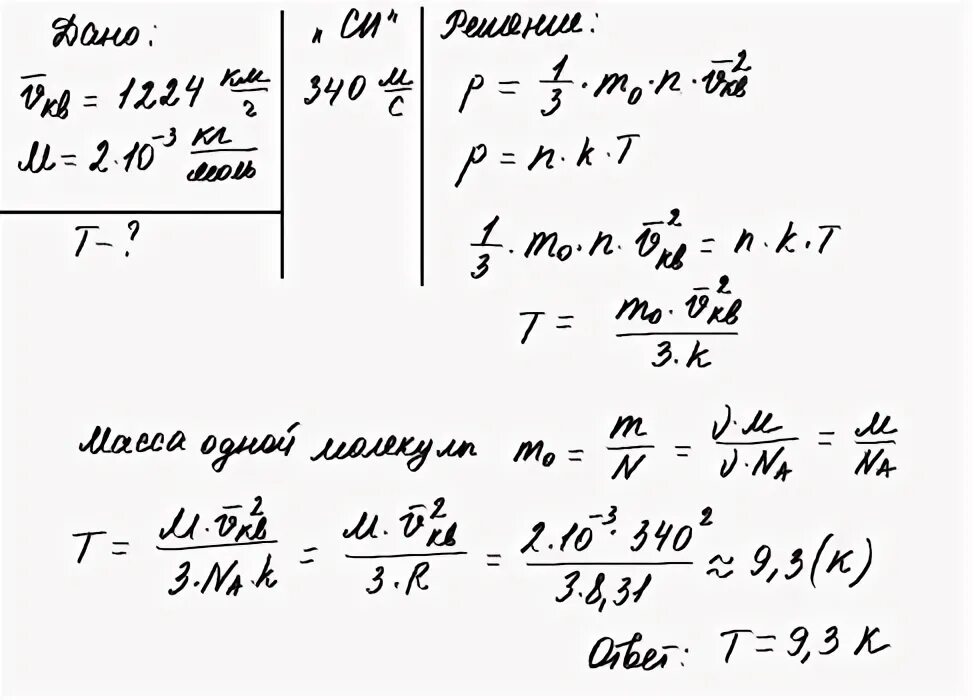 Дано:
v̄кв = 1224 км/г
M = 2·10⁻³ кг/моль
T – ?
„СИ"
340 м/с
Решение:
p = 1/3 · m₀ · n · v̄²кв
p = n · k · T
1/3 · m₀ · n · v̄²кв = n · k · T
T = m₀ · v̄²кв / 3 · k
Масса одной молекулы m₀ = m/N = ν·M/ν·N_A = M/N_A
T = M · v̄²кв / 3 · N_A · k = M · v̄²кв / 3 · R = 2·10⁻³ · 340² / 3 · 8,31 ≈ 9,3 (К)
Ответ: T = 9,3 К